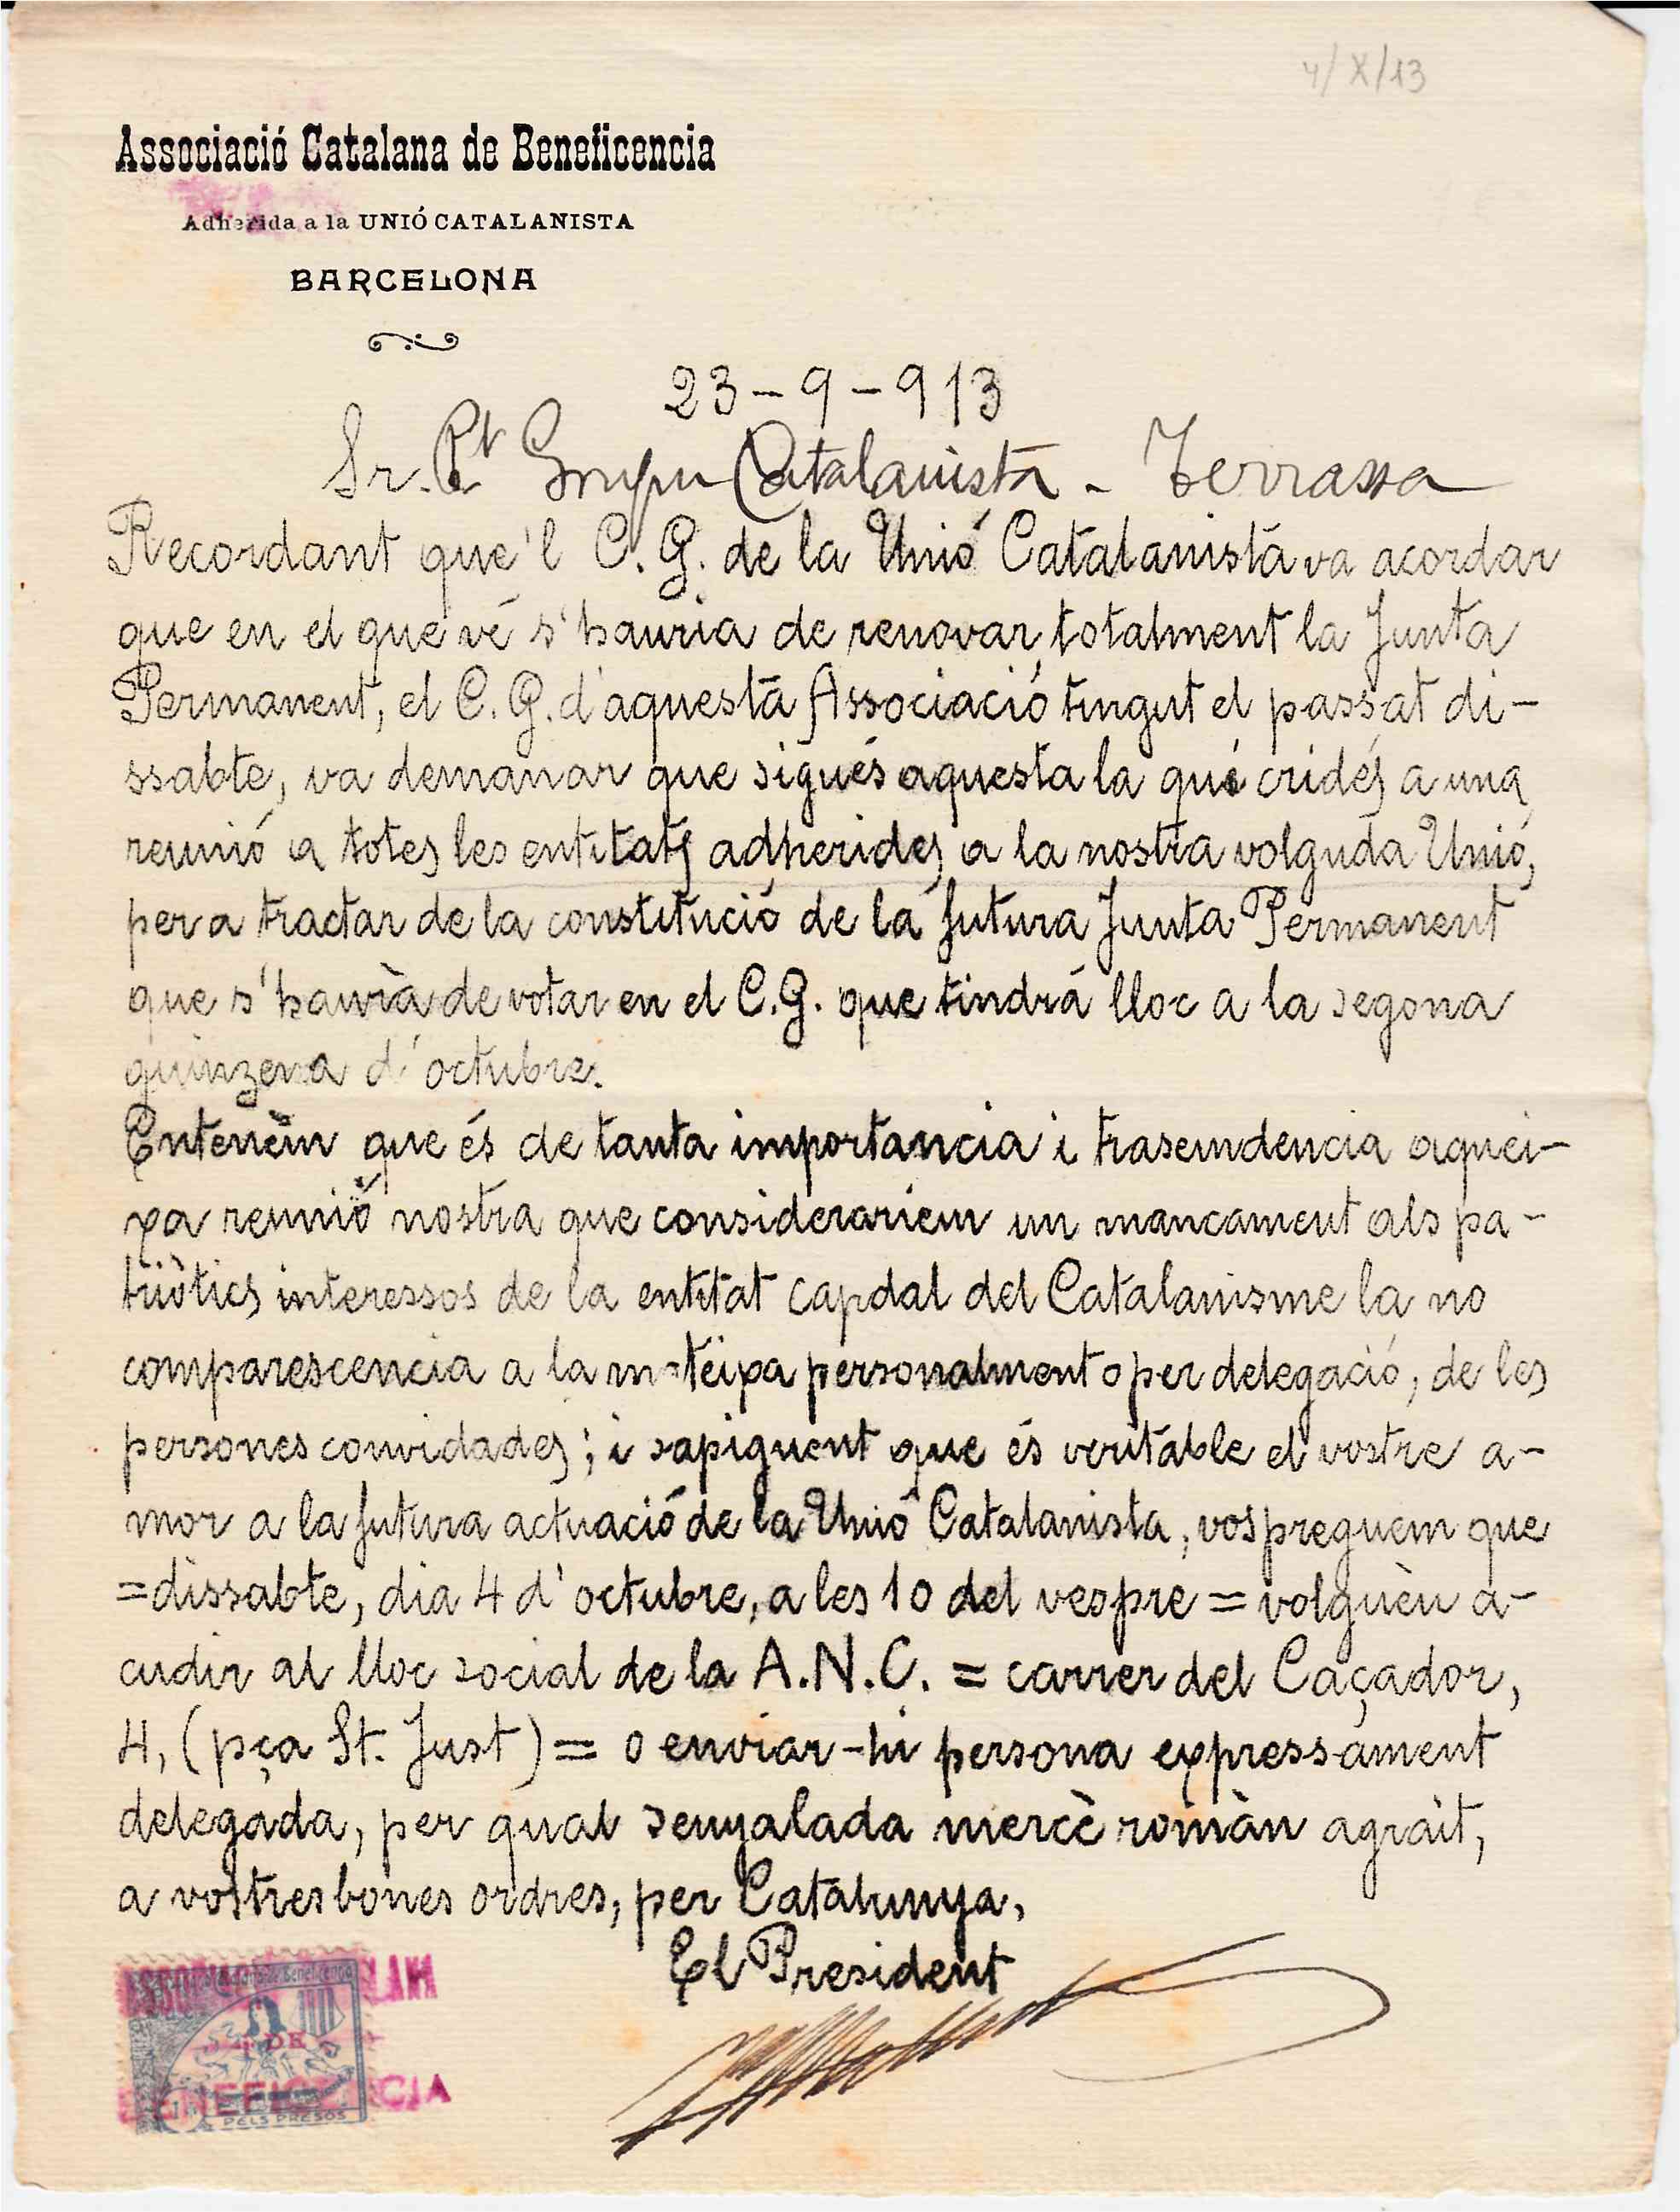 4/X/13
Associació Catalana de Beneficencia
Adherida a la UNIÓ CATALANISTA
BARCELONA
23-9-913
Sr. Pt Grupu Catalanista - Terrassa
Recordant que'l C.G. de la Unió Catalanista va acordar
que en el que vé s'hauria de renovar totalment la Junta
Permanent, el C.G. d'aquesta Associació tingut el passat di-
ssabte, va demanar que sigués aquesta la que cridés a una
reunió a totes les entitats adherides a la nostra volguda Unió,
per a tractar de la constitució de la futura Junta Permanent
que s'haurà de votar en el C.G. que tindrá lloc a la segona
quinzena d'octubre.
Entenèm que és de tanta importancia i trasemdencia aquei-
xa reunió nostra que considerariem un mancament als pa-
triòtics interessos de la entitat capdal del Catalanisme la no
comparescencia a la mateixa personalment o per delegació, de les
persones convidades; i sapiguent que és veritable el vostre a-
mor a la futura actuació de la Unió Catalanista, vos preguem que
=dissabte, dia 4 d'octubre, a les 10 del vespre = volguèu a-
cudir al lloc social de la A.N.C. = carrer del Caçador,
4, (pça St. Just) = o enviar-hi persona expressament
delegada, per qual senyalada mercè romàn agraït,
a vostres bones ordres, per Catalunya,
El President
ASSOCIA
DE
BENEFICENCIA
PELS PRESOS